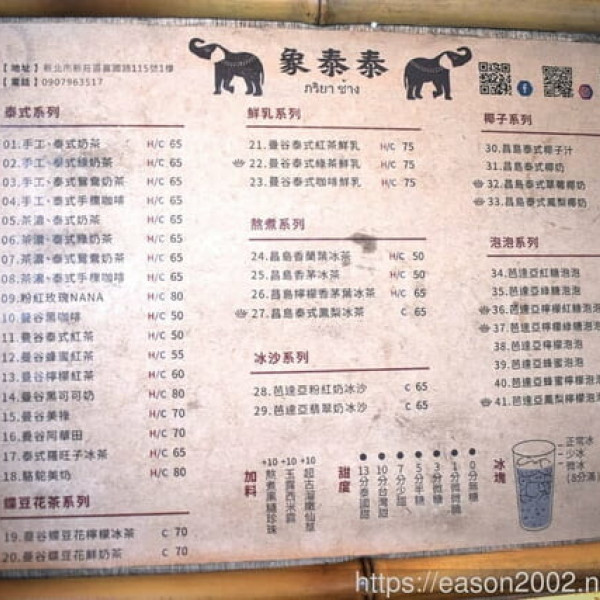 【地址】新北市新莊區富國路115號1樓
【電話】0907963517
象泰泰
ภริยา ช้าง
泰式系列
01.手工、泰式奶茶 H/C 65
02.手工、泰式綠奶茶 H/C 65
03.手工、泰式鴛鴦奶茶 H/C 65
04.手工、泰式手標咖啡 H/C 65
05.茶濃、泰式奶茶 H/C 65
06.茶濃、泰式綠奶茶 H/C 65
07.茶濃、泰式鴛鴦奶茶 H/C 65
08.茶濃、泰式手標咖啡 H/C 65
09.粉紅玫瑰NANA H/C 80
10.曼谷黑咖啡 H/C 50
11.曼谷泰式紅茶 H/C 50
12.曼谷蜂蜜紅茶 H/C 55
13.曼谷檸檬紅茶 H/C 60
14.曼谷黑可可奶 H/C 80
15.曼谷美祿 H/C 70
16.曼谷阿華田 H/C 70
17.泰式羅旺子冰茶 H/C 65
18.駱駝美奶 H/C 80
蝶豆花茶系列
19.曼谷蝶豆花檸檬冰茶 C 70
20.曼谷蝶豆花鮮奶茶 C 70
鮮乳系列
21.曼谷泰式紅茶鮮乳 H/C 75
22.曼谷泰式綠茶鮮乳 H/C 75
23.曼谷泰式咖啡鮮乳 H/C 75
熬煮系列
24.昌島香蘭葉冰茶 H/C 50
25.昌島香茅冰茶 H/C 50
26.昌島檸檬香茅葉冰茶 H/C 65
27.昌島泰式鳳梨冰茶 C 65
冰沙系列
28.芭達亞粉紅奶冰沙 C 65
29.芭達亞翡翠奶冰沙 C 65
椰子系列
30.昌島泰式椰子汁
31.昌島泰式椰奶
32.昌島泰式草莓椰奶
33.昌島泰式鳳梨椰奶
泡泡系列
34.芭達亞紅糖泡泡
35.芭達亞綠糖泡泡
36.芭達亞檸檬紅糖泡泡
37.芭達亞檸檬綠糖泡泡
38.芭達亞檸檬泡泡
39.芭達亞蜂蜜泡泡
40.芭達亞蜂蜜檸檬泡泡
41.芭達亞鳳梨檸檬泡泡
加料
+10 熬煮黑糖珍珠
+10 玉露西米露
+10 超古溜嫩仙草
甜度
13分泰國甜
10分台灣甜
7分少甜
5分半糖
3分微糖
1分微微糖
0分無糖
冰塊
正常冰
少冰
微冰
(8分滿)
https://eason2002.n